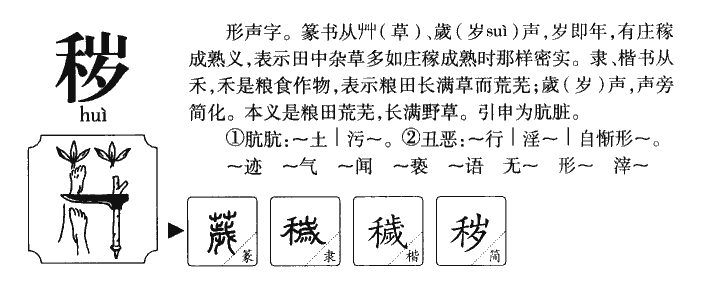 秽
huì
形声字。篆书从艸(草)、歲(岁suì)声,岁即年,有庄稼
成熟义,表示田中杂草多如庄稼成熟时那样密实。隶、楷书从
禾,禾是粮食作物,表示粮田长满草而荒芜;歲(岁)声,声旁
简化。本义是粮田荒芜,长满野草。引申为肮脏。
①肮肮:～土|污～。②丑恶:～行|淫～|自惭形～。
～迹 ～气 ～闻 ～亵 ～语 无～ 形～ 滓～
薉 篆
穢 隶
穢 楷
秽 简